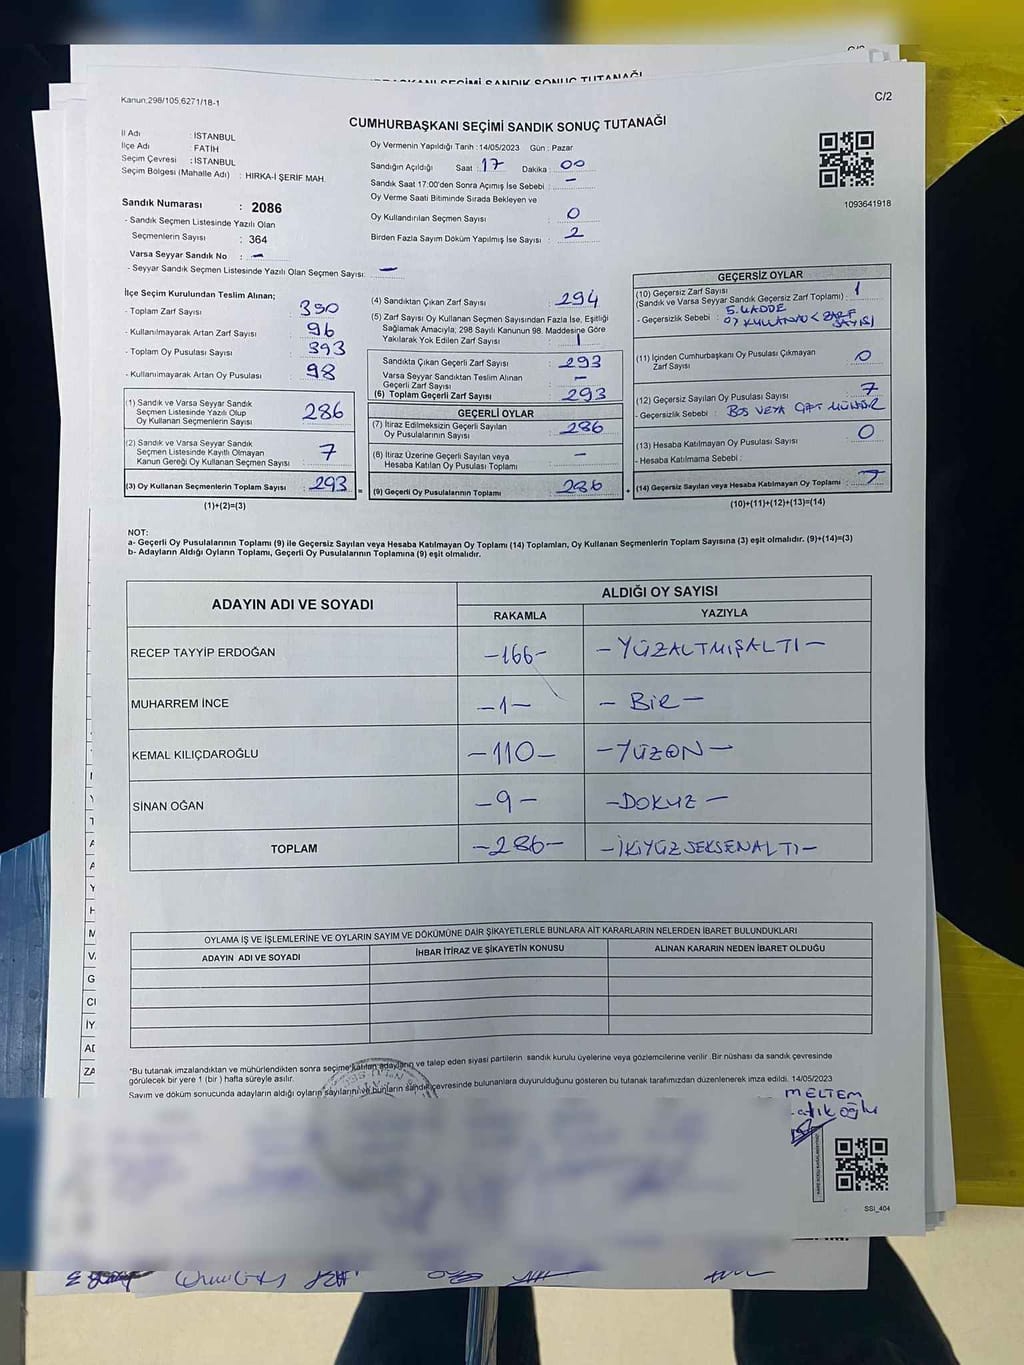 Kanun:298/105,6271/18-1
C/2
CUMHURBAŞKANI SEÇİMİ SANDIK SONUÇ TUTANAĞI
İl Adı : İSTANBUL
İlçe Adı : FATİH
Seçim Çevresi : İSTANBUL
Seçim Bölgesi (Mahalle Adı) : HIRKA-İ ŞERİF MAH.
Sandık Numarası : 2086
- Sandık Seçmen Listesinde Yazılı Olan
Seçmenlerin Sayısı : 364
Varsa Seyyar Sandık No : -
- Seyyar Sandık Seçmen Listesinde Yazılı Olan Seçmen Sayısı: -
Oy Vermenin Yapıldığı Tarih :14/05/2023 Gün : Pazar
Sandığın Açıldığı Saat : 17 Dakika : 00
Sandık Saat 17:00'den Sonra Açımış İse Sebebi : -
Oy Verme Saati Bitiminde Sırada Bekleyen ve
Oy Kullandırılan Seçmen Sayısı : 0
Birden Fazla Sayım Döküm Yapılmış İse Sayısı : 2
1093641918
İlçe Seçim Kurulundan Teslim Alınan;
- Toplam Zarf Sayısı : 390
- Kullanılmayarak Artan Zarf Sayısı : 96
- Toplam Oy Pusulası Sayısı : 393
- Kullanılmayarak Artan Oy Pusulası : 98
(1) Sandık ve Varsa Seyyar Sandık
Seçmen Listesinde Yazılı Olup
Oy Kullanan Seçmenlerin Sayısı : 286
(2) Sandık ve Varsa Seyyar Sandık
Seçmen Listesinde Kayıtlı Olmayan
Kanun Gereği Oy Kullanan Seçmen Sayısı : 7
(3) Oy Kullanan Seçmenlerin Toplam Sayısı : 293
(1)+(2)=(3)
(4) Sandıktan Çıkan Zarf Sayısı : 294
(5) Zarf Sayısı Oy Kullanan Seçmen Sayısından Fazla İse, Eşitliği
Sağlamak Amacıyla; 298 Sayılı Kanunun 98. Maddesine Göre
Yakılarak Yok Edilen Zarf Sayısı : 1
Sandıkta Çıkan Geçerli Zarf Sayısı : 293
Varsa Seyyar Sandıktan Teslim Alınan
Geçerli Zarf Sayısı : -
(6) Toplam Geçerli Zarf Sayısı : 293
GEÇERLİ OYLAR
(7) İtiraz Edilmeksizin Geçerli Sayılan
Oy Pusulalarının Sayısı : 286
(8) İtiraz Üzerine Geçerli Sayılan veya
Hesaba Katılan Oy Pusulası Toplamı : -
= (9) Geçerli Oy Pusulalarının Toplamı : 286 +
GEÇERSİZ OYLAR
(10) Geçersiz Zarf Sayısı
(Sandık ve Varsa Seyyar Sandık Geçersiz Zarf Toplamı) : 1
- Geçersizlik Sebebi : 5. MADDE
OY KULLANAN < ZARF
SAYISI
(11) İçinden Cumhurbaşkanı Oy Pusulası Çıkmayan
Zarf Sayısı : 0
(12) Geçersiz Sayılan Oy Pusulası Sayısı : 7
- Geçersizlik Sebebi : BOŞ VEYA ÇİFT MÜHÜR
(13) Hesaba Katılmayan Oy Pusulası Sayısı : 0
- Hesaba Katılmama Sebebi :
(14) Geçersiz Sayılan veya Hesaba Katılmayan Oy Toplamı : 7
(10)+(11)+(12)+(13)=(14)
NOT:
a- Geçerli Oy Pusulalarının Toplamı (9) ile Geçersiz Sayılan veya Hesaba Katılmayan Oy Toplamı (14) Toplamları, Oy Kullanan Seçmenlerin Toplam Sayısına (3) eşit olmalıdır. (9)+(14)=(3)
b- Adayların Aldığı Oyların Toplamı, Geçerli Oy Pusulalarının Toplamına (9) eşit olmalıdır.
ADAYIN ADI VE SOYADI
ALDIĞI OY SAYISI
RAKAMLA YAZIYLA
RECEP TAYYİP ERDOĞAN -166- -YÜZALTMIŞALTI-
MUHARREM İNCE -1- -BİR-
KEMAL KILIÇDAROĞLU -110- -YÜZON-
SİNAN OĞAN -9- -DOKUZ-
TOPLAM -286- -İKİYÜZSEKSENALTI-
OYLAMA İŞ VE İŞLEMLERİNE VE OYLARIN SAYIM VE DÖKÜMÜNE DAİR ŞİKAYETLERLE BUNLARA AİT KARARLARIN NELERDEN İBARET BULUNDUKLARI
ADAYIN ADI VE SOYADI İHBAR İTİRAZ VE ŞİKAYETİN KONUSU ALINAN KARARIN NEDEN İBARET OLDUĞU
*Bu tutanak imzalandıktan ve mühürlendikten sonra seçime katılan adayların ve talep eden siyasi partilerin sandık kurulu üyelerine ve gözlemcilerine verilir. Bir nüshası da sandık çevresinde
görülecek bir yere 1 (bir) hafta süreyle asılır.
Sayım ve döküm sonucunda adayların aldığı oyların sayılarını ve bunların sandık çevresinde bulunanlara duyurulduğunu gösteren bu tutanak tarafımızdan düzenlenerek imza edildi. 14/05/2023
MELTEM
SSI_404